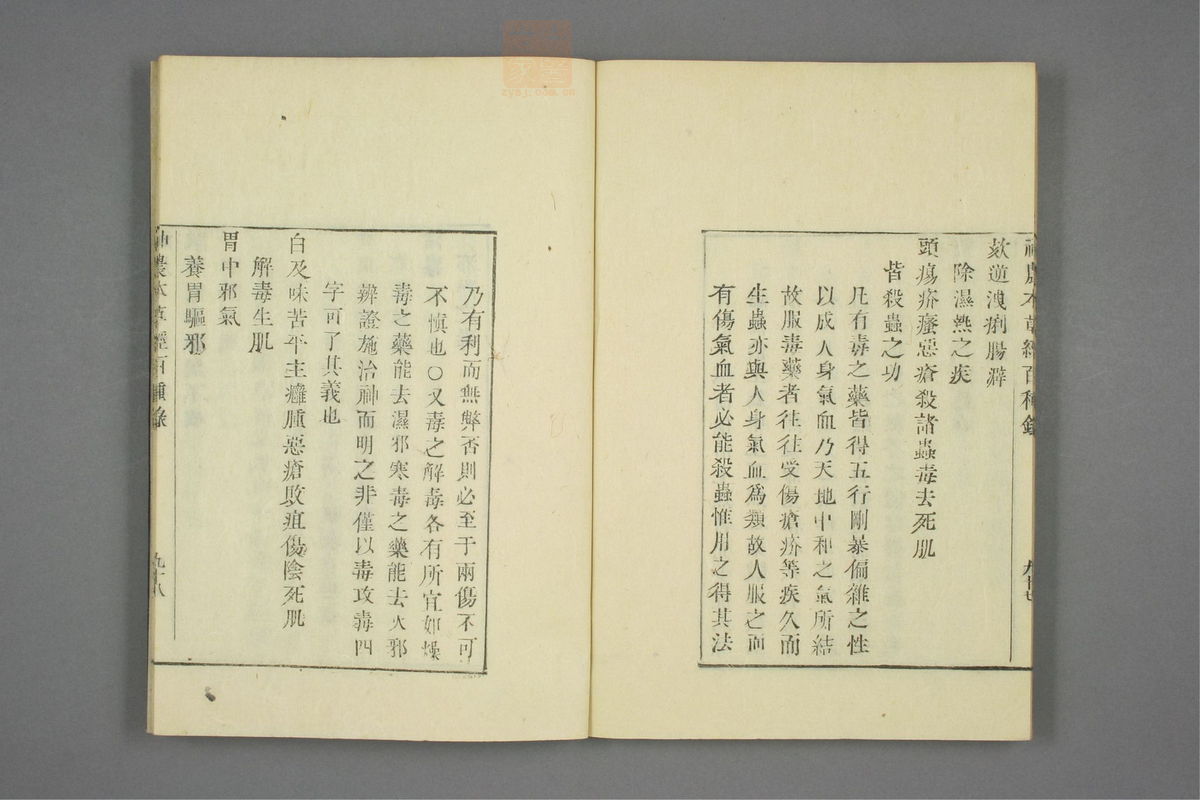 神農本草經百種錄
九十七
欬逆洩痢腸澼
除濕熱之疾
頭瘍疥瘙惡瘡殺諸蟲毒去死肌
皆殺蟲之功
凡有毒之藥皆得五行剛暴偏雜之性
以成人身氣血乃天地中和之氣所結
故服毒藥者往往受傷瘡疥等疾久而
生蟲亦與人身氣血爲類故人服之而
有傷氣血者必能殺蟲惟用之得其法
乃有利而無弊否則必至于兩傷不可
不愼也〇又毒之解毒各有所宜如燥
毒之藥能去濕邪寒毒之藥能去火邪
辨證施治神而明之非僅以毒攻毒四
字可了其義也
白及味苦平主癰腫惡瘡敗疽傷陰死肌
解毒生肌
胃中邪氣
養胃驅邪
神農本草經百種錄
九十八
zysj.com.cn